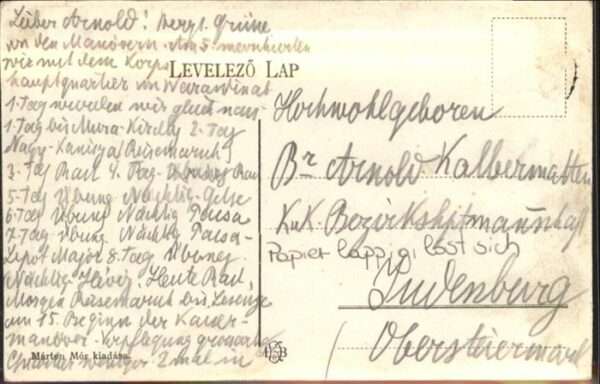 Lieber Arnold! Herzl. Grüsse
von den Manövern. Am 5.
wir mit dem Korps
hauptquartier in Warasdin
1. Tag wir
1. Tag bis Mura-Kiraly 2. Tag
Nagy-Kanizsa (Reisemarsch)
3. Tag Rast 4. Tag Übung
5. Tag Übung Nächtig. Gelse
6. Tag Übung Nächtig Pacsa
7. Tag Übung Nächtig Pacsa-
Major 8. Tag Übung
Nächtig Heviz. Heute Rast,
Morgen Reisemarsch bis
am 15. Beginn der Kaiser-
manöver. Verpflegung
weniger 2 mal in
LEVELEZŐ LAP
Hochwohlgeboren
Br Arnold Kalbermatten
K u K Bezirkshptmannschaft
Papier lappig, löst sich
Judenburg
Obersteiermark
Márton Mór kiadása